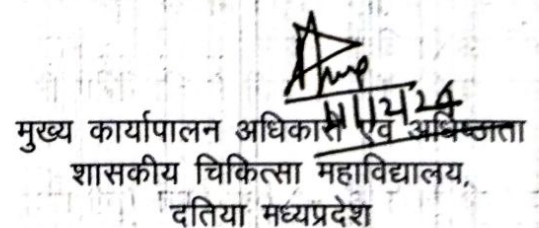 11/12/24
मुख्य कार्यापालन अधिकारी एवं अधिष्ठाता
शासकीय चिकित्सा महाविद्यालय,
दतिया मध्यप्रदेश